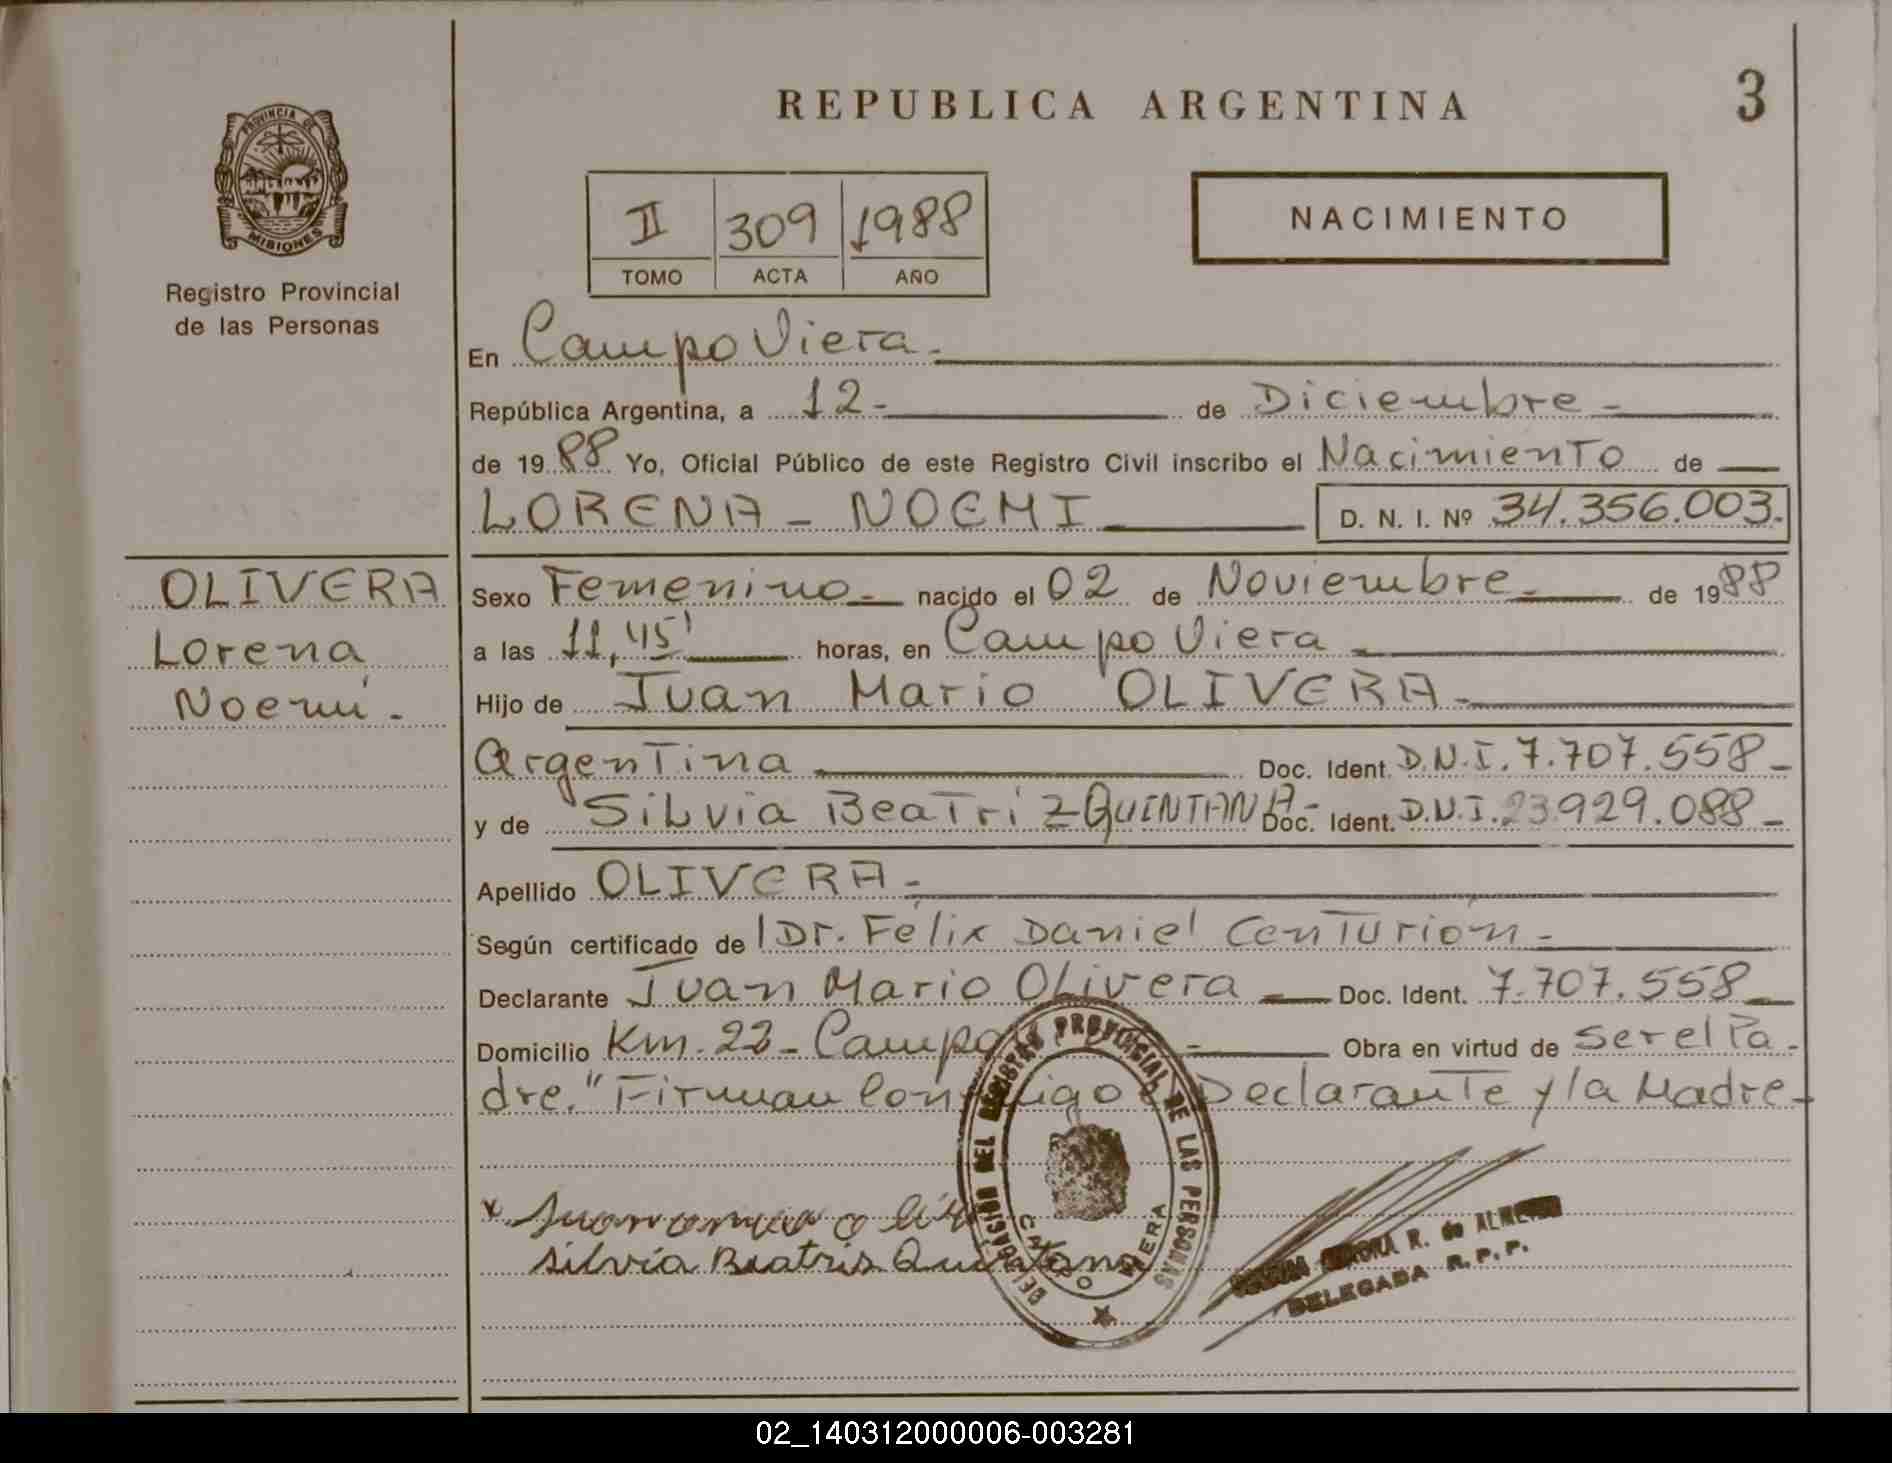 REPUBLICA ARGENTINA
3
PROVINCIA DE
MISIONES
Registro Provincial
de las Personas
II 309 1988
TOMO ACTA AÑO
NACIMIENTO
En Campo Viera -
República Argentina, a 12 - de Diciembre -
de 1988 Yo, Oficial Público de este Registro Civil inscribo el Nacimiento de
LORENA - NOEMI
D. N. I. Nº 34.356.003.
OLIVERA
Lorena
Noemí -
Sexo Femenino - nacido el 02 de Noviembre - de 1988
a las 11,45' horas, en Campo Viera -
Hijo de Juan Mario OLIVERA -
Argentina Doc. Ident. D.N.I. 7.707.558 -
y de Silvia Beatriz QUINTANA - Doc. Ident. D.N.I. 23.929.088 -
Apellido OLIVERA -
Según certificado de Dr. Félix Daniel Centurión -
Declarante Juan Mario Olivera Doc. Ident. 7.707.558
Domicilio Km. 22 - Campo - Obra en virtud de ser el Pa-
dre." Firman Declarante y la Madre -
DELEGACION DEL REGISTRO PROVINCIAL DE LAS PERSONAS
CAMPO VIERA
silvia Beatris Quintana
R. de ALMEIDA
DELEGADA R. P. P.
02_140312000006-003281